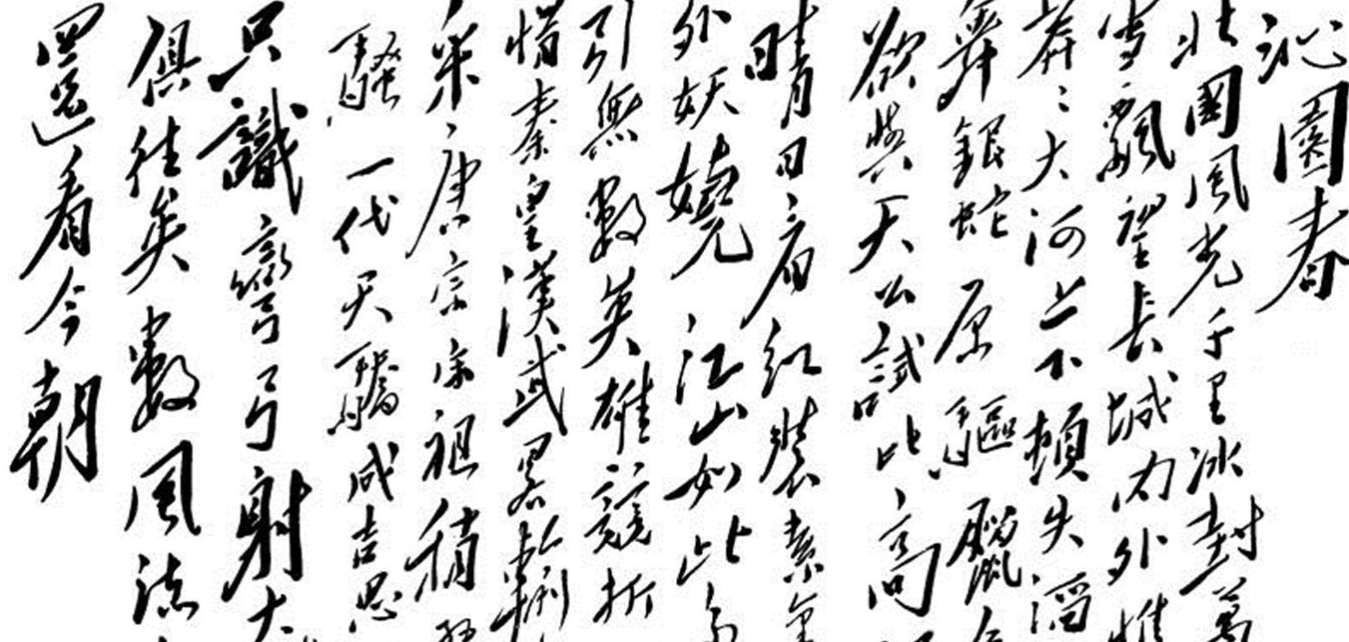 沁園春
北國風光千里冰封萬
雪飄望長城內外惟
莽々大河上下頓失滔
舞銀蛇原驅臘
欲與天公試比高
晴日看紅裝素裹
外妖嬈江山如此多
引無數英雄競折
惜秦皇漢武略輸
采唐宗宋祖稍
騷一代天驕成吉思
只識彎弓射大
俱往矣數風流
還看今朝